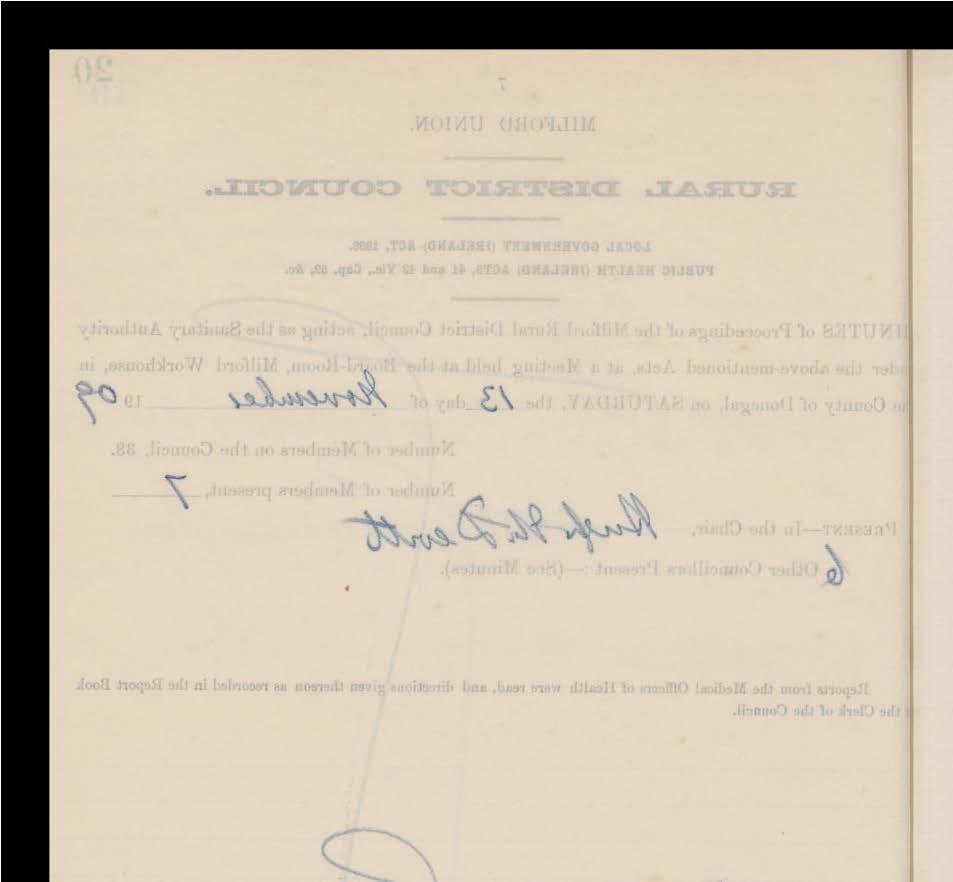 20
7
MILFORD UNION.
RURAL DISTRICT COUNCIL.
LOCAL GOVERNMENT (IRELAND) ACT, 1898.
PUBLIC HEALTH (IRELAND) ACTS, 41 and 42 Vic., Cap. 52, &c.
INUTES of Proceedings of the Milford Rural District Council, acting as the Sanitary Authority
nder the above-mentioned Acts, at a Meeting held at the Board-Room, Milford Workhouse, in
he County of Donegal, on SATURDAY, the 13 day of November 1909
Number of Members on the Council, 38.
Number of Members present, 7
PRESENT—In the Chair, Hugh McDevitt
6 Other Councillors Present:—(See Minutes).
Reports from the Medical Officers of Health were read, and directions given thereon as recorded in the Report Book
the Clerk of the Council.